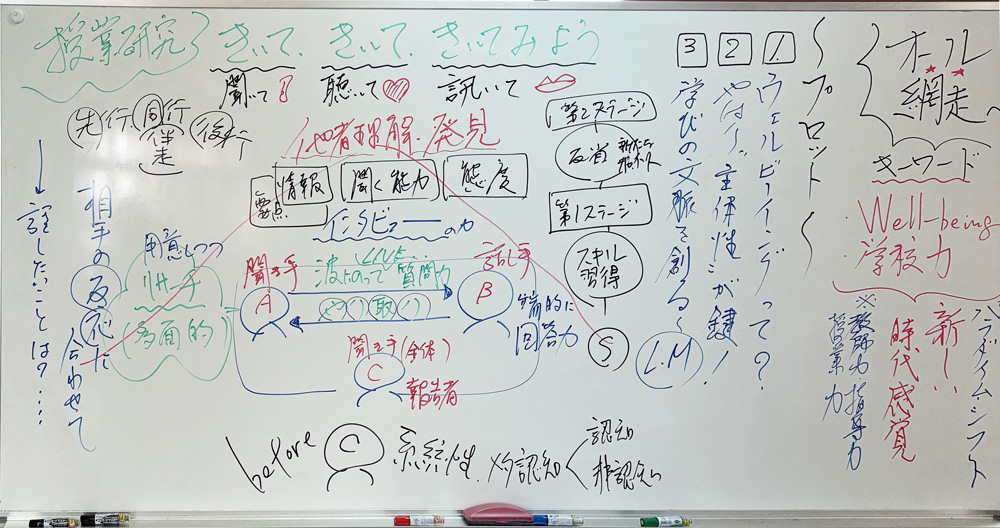 授業研究 きいて、きいて、きいてみよう
聞いて 聴いて 訊いて
先行 同行 後行
伴走
他者理解・発見
情報 聞く能力 態度
要点
インタビューの力
用意しつつ
(多面的)
LIVE
聞き手 波にのって質問力 話し手
A B
やり取り
端的に
回答力
聞き手(全体)
C
報告者
相手の反応に合わせて
話したいことは?‥‥
before C 系統性 メタ認知
認知
非認知
第2ステージ
反省
第1ステージ
スキル
習得
S
~プロット~
1. ウェルビーイングって?
2 やはり、主体性が鍵!
3 学びの文脈を創る~
L.M
オール
網走
キーワード
Well-being
学校力
パラダイムシフト
新しい
時代感覚
※教師力・指導力
授業力